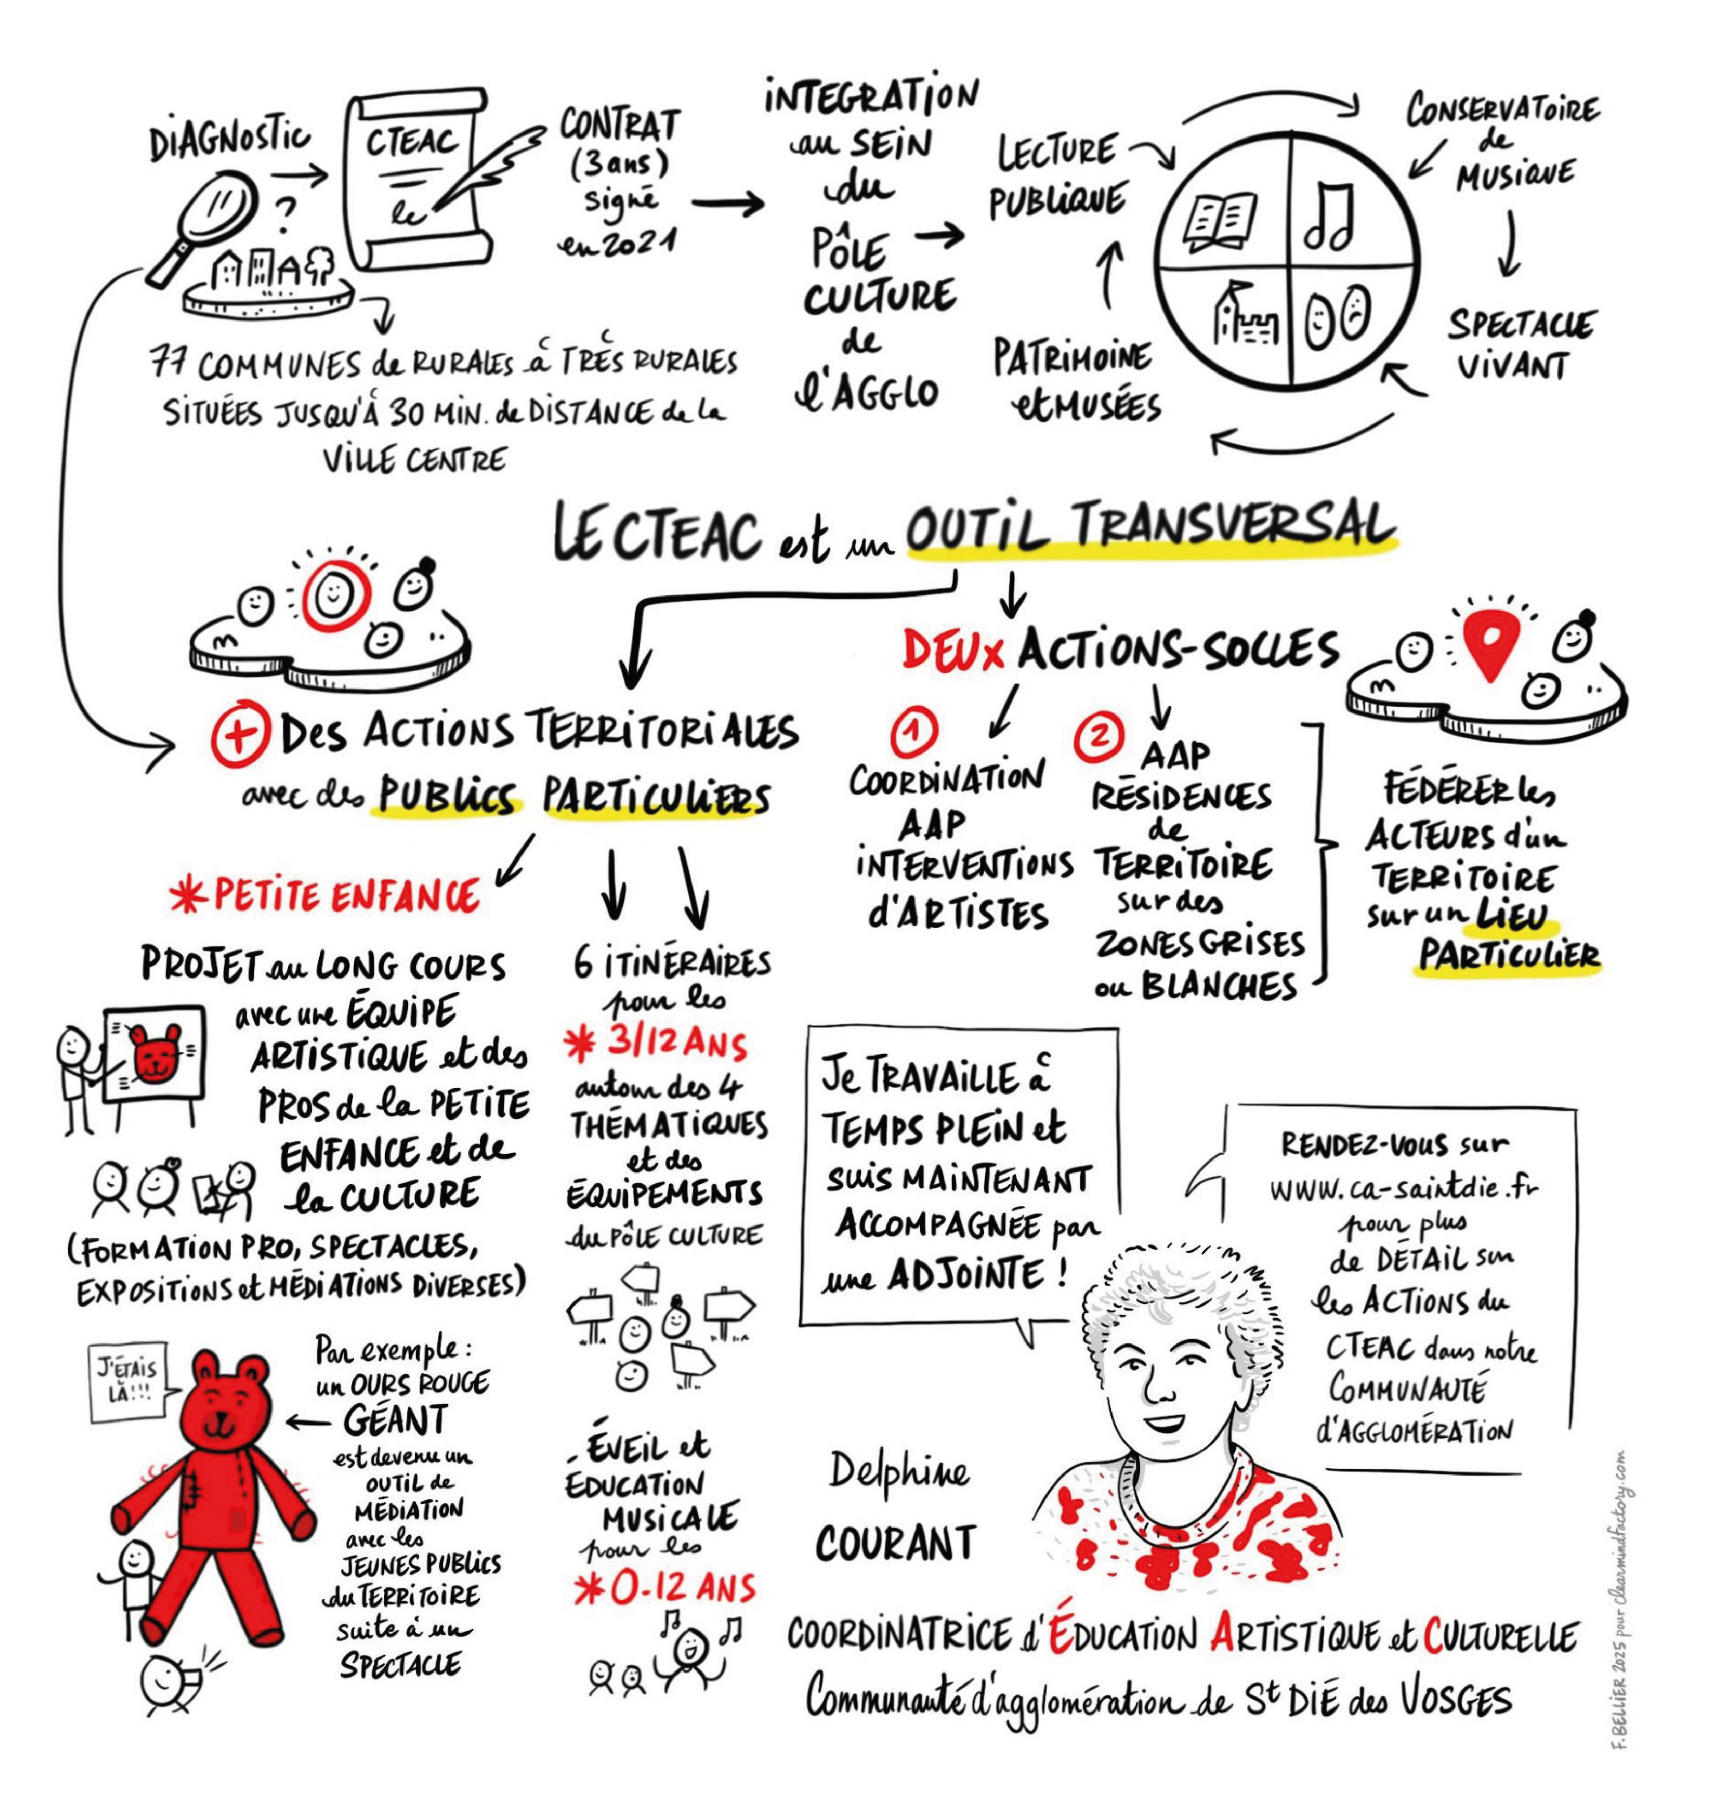 DIAGNOSTIC
?
CTEAC
le
CONTRAT
(3 ans)
signé
en 2021
77 COMMUNES de RURALES à TRÈS RURALES
SITUÉES JUSQU'À 30 MIN. de DISTANCE de la
VILLE CENTRE
INTEGRATION
au SEIN
du
PÔLE
CULTURE
de
l'AGGLO
LECTURE
PUBLIQUE
CONSERVATOIRE
de
MUSIQUE
SPECTACLE
VIVANT
PATRIMOINE
et MUSÉES
LE CTEAC est un OUTIL TRANSVERSAL
+ Des ACTIONS TERRITORIALES
avec des PUBLICS PARTICULIERS
DEUX ACTIONS-SOCLES
1
COORDINATION
AAP
INTERVENTIONS
d'ARTISTES
2
AAP
RÉSIDENCES
de
TERRITOIRE
sur des
ZONES GRISES
ou BLANCHES
FÉDÉRER les
ACTEURS d'un
TERRITOIRE
sur un LIEU
PARTICULIER
* PETITE ENFANCE
PROJET au LONG COURS
avec une ÉQUIPE
ARTISTIQUE et des
PROS de la PETITE
ENFANCE et de
la CULTURE
(FORMATION PRO, SPECTACLES,
EXPOSITIONS et MÉDIATIONS DIVERSES)
J'ÉTAIS
LÀ!!!
Par exemple :
un OURS ROUGE
GÉANT
est devenu un
OUTIL de
MÉDIATION
avec les
JEUNES PUBLICS
du TERRITOIRE
suite à un
SPECTACLE
6 ITINÉRAIRES
pour les
* 3/12 ANS
autour des 4
THÉMATIQUES
et des
ÉQUIPEMENTS
du PÔLE CULTURE
- ÉVEIL et
ÉDUCATION
MUSICALE
pour les
* 0-12 ANS
Je TRAVAILLE à
TEMPS PLEIN et
suis MAINTENANT
ACCOMPAGNÉE par
une ADJOINTE !
RENDEZ-VOUS sur
WWW.ca-saintdie.fr
pour plus
de DÉTAIL sur
les ACTIONS du
CTEAC dans notre
COMMUNAUTÉ
d'AGGLOMÉRATION
Delphine
COURANT
COORDINATRICE d'ÉDUCATION ARTISTIQUE et CULTURELLE
Communauté d'agglomération de St DIÉ des VOSGES
F. BELLIER 2025 pour clearmindfactory.com